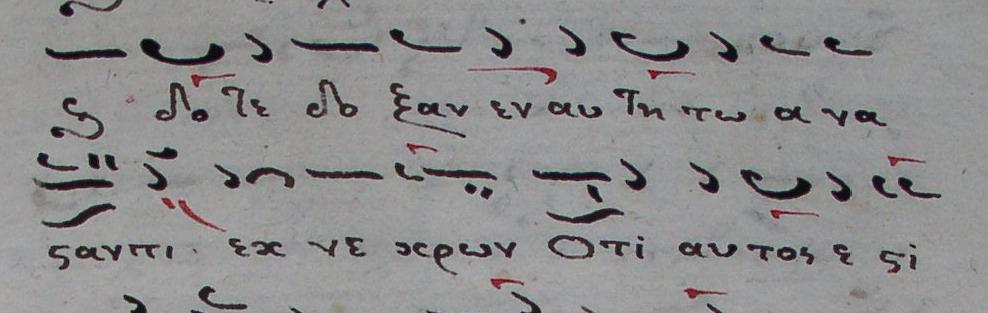 ς δο τε δο ξαν εν αυ τη τω α να
σαντι. εκ νε κρων Οτι αυτος ε στ